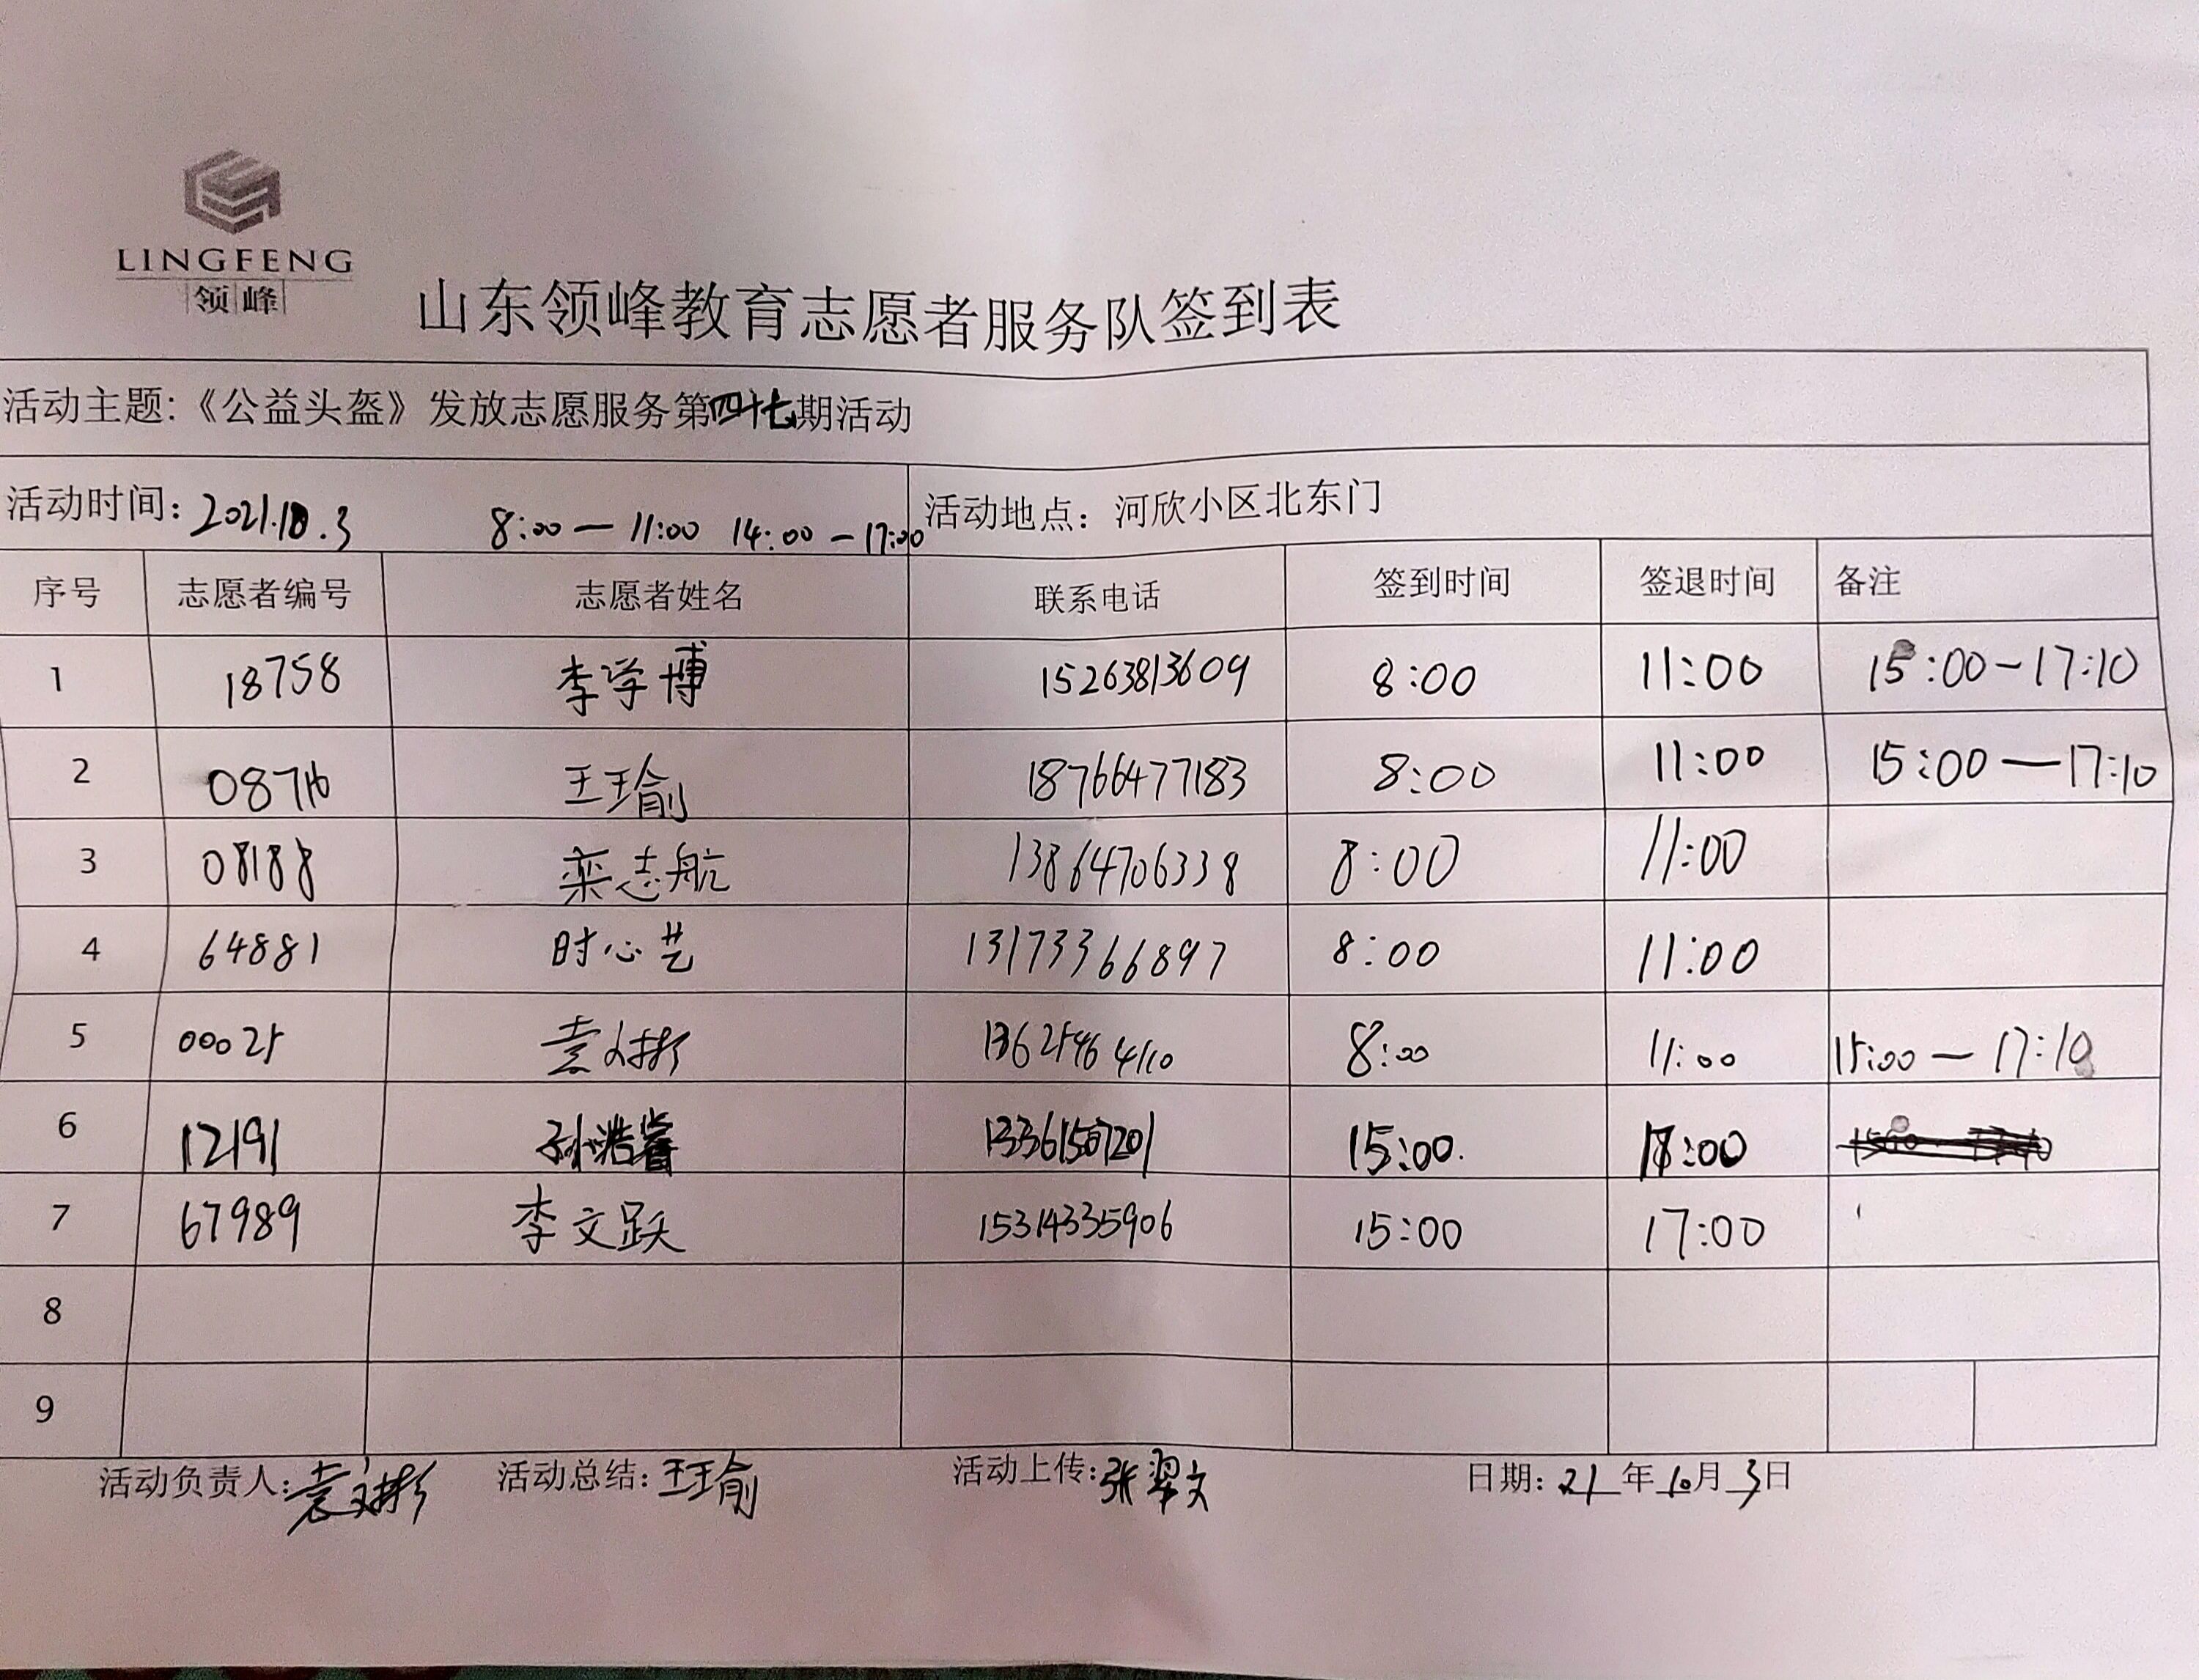 LINGFENG
领峰
山东领峰教育志愿者服务队签到表
活动主题:《公益头盔》发放志愿服务第四十七期活动
活动时间: 2021.10.3 8:00—11:00 14:00—17:00 活动地点: 河欣小区北东门
序号 志愿者编号 志愿者姓名 联系电话 签到时间 签退时间 备注
1 18758 李学博 15263813609 8:00 11:00 15:00-17:10
2 08716 王瑜 18766477183 8:00 11:00 15:00—17:10
3 08188 栾志航 13864706338 8:00 11:00
4 64881 时心艺 13173366897 8:00 11:00
5 00025 袁文彬 13625464110 8:00 11:00 15:00—17:10
6 12191 孙浩睿 13361507201 15:00. 17:00
7 67989 李文跃 15314335906 15:00 17:00
8
9
活动负责人: 袁文彬 活动总结: 王瑜 活动上传: 张翠文 日期: 21年10月3日